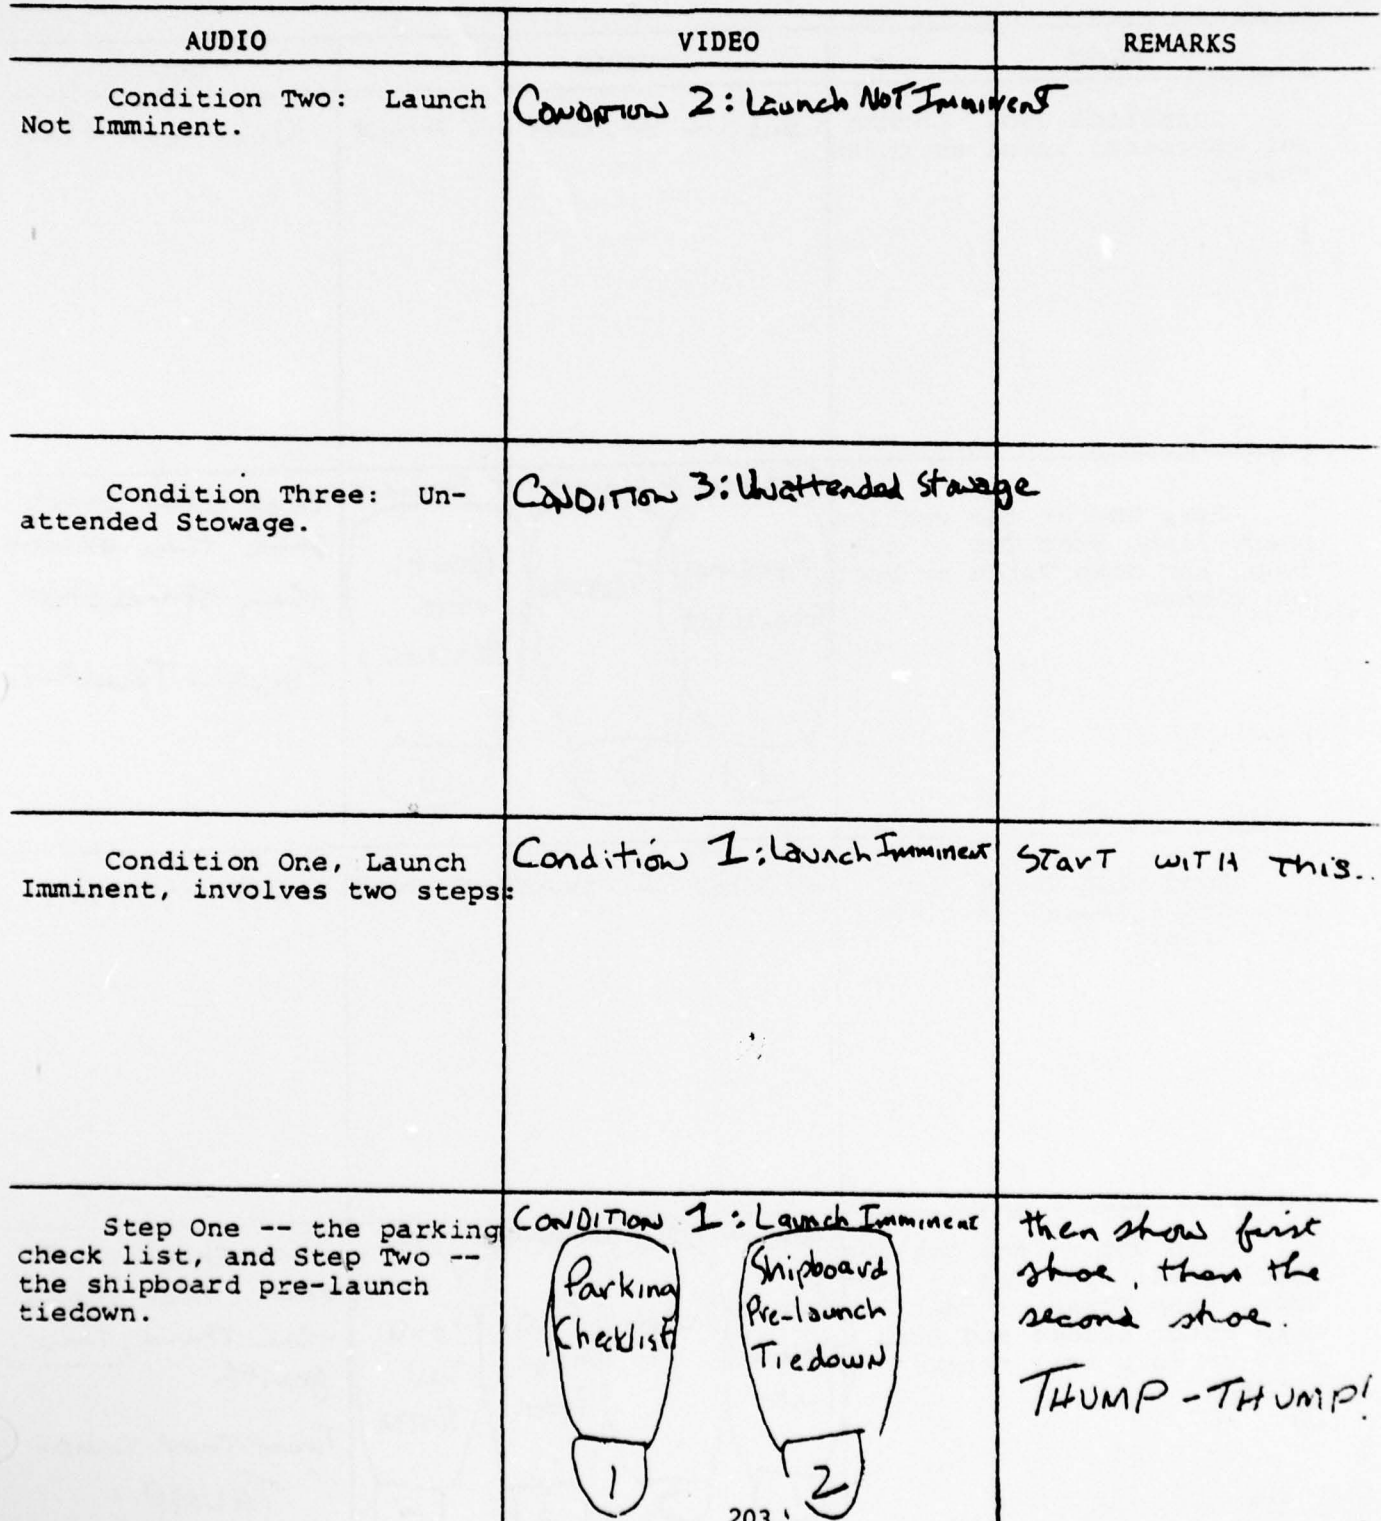 AUDIO
VIDEO
REMARKS
Condition Two: Launch
Not Imminent.
CONDITION 2: Launch NOT Imminent
Condition Three: Un-
attended Stowage.
CONDITION 3: Unattended Stowage
Condition One, Launch
Imminent, involves two steps:
Condition 1: Launch Imminent
START WITH This..
Step One -- the parking
check list, and Step Two --
the shipboard pre-launch
tiedown.
CONDITION 1: Launch Imminent
Parking
Checklist
1
Shipboard
Pre-launch
Tiedown
2
then show first
shoe, then the
second shoe.
THUMP - THUMP!
203